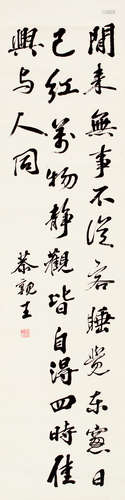 閒來無事不從容睡覺東窗日
已紅萬物靜觀皆自得四時佳
興与人同
恭親王